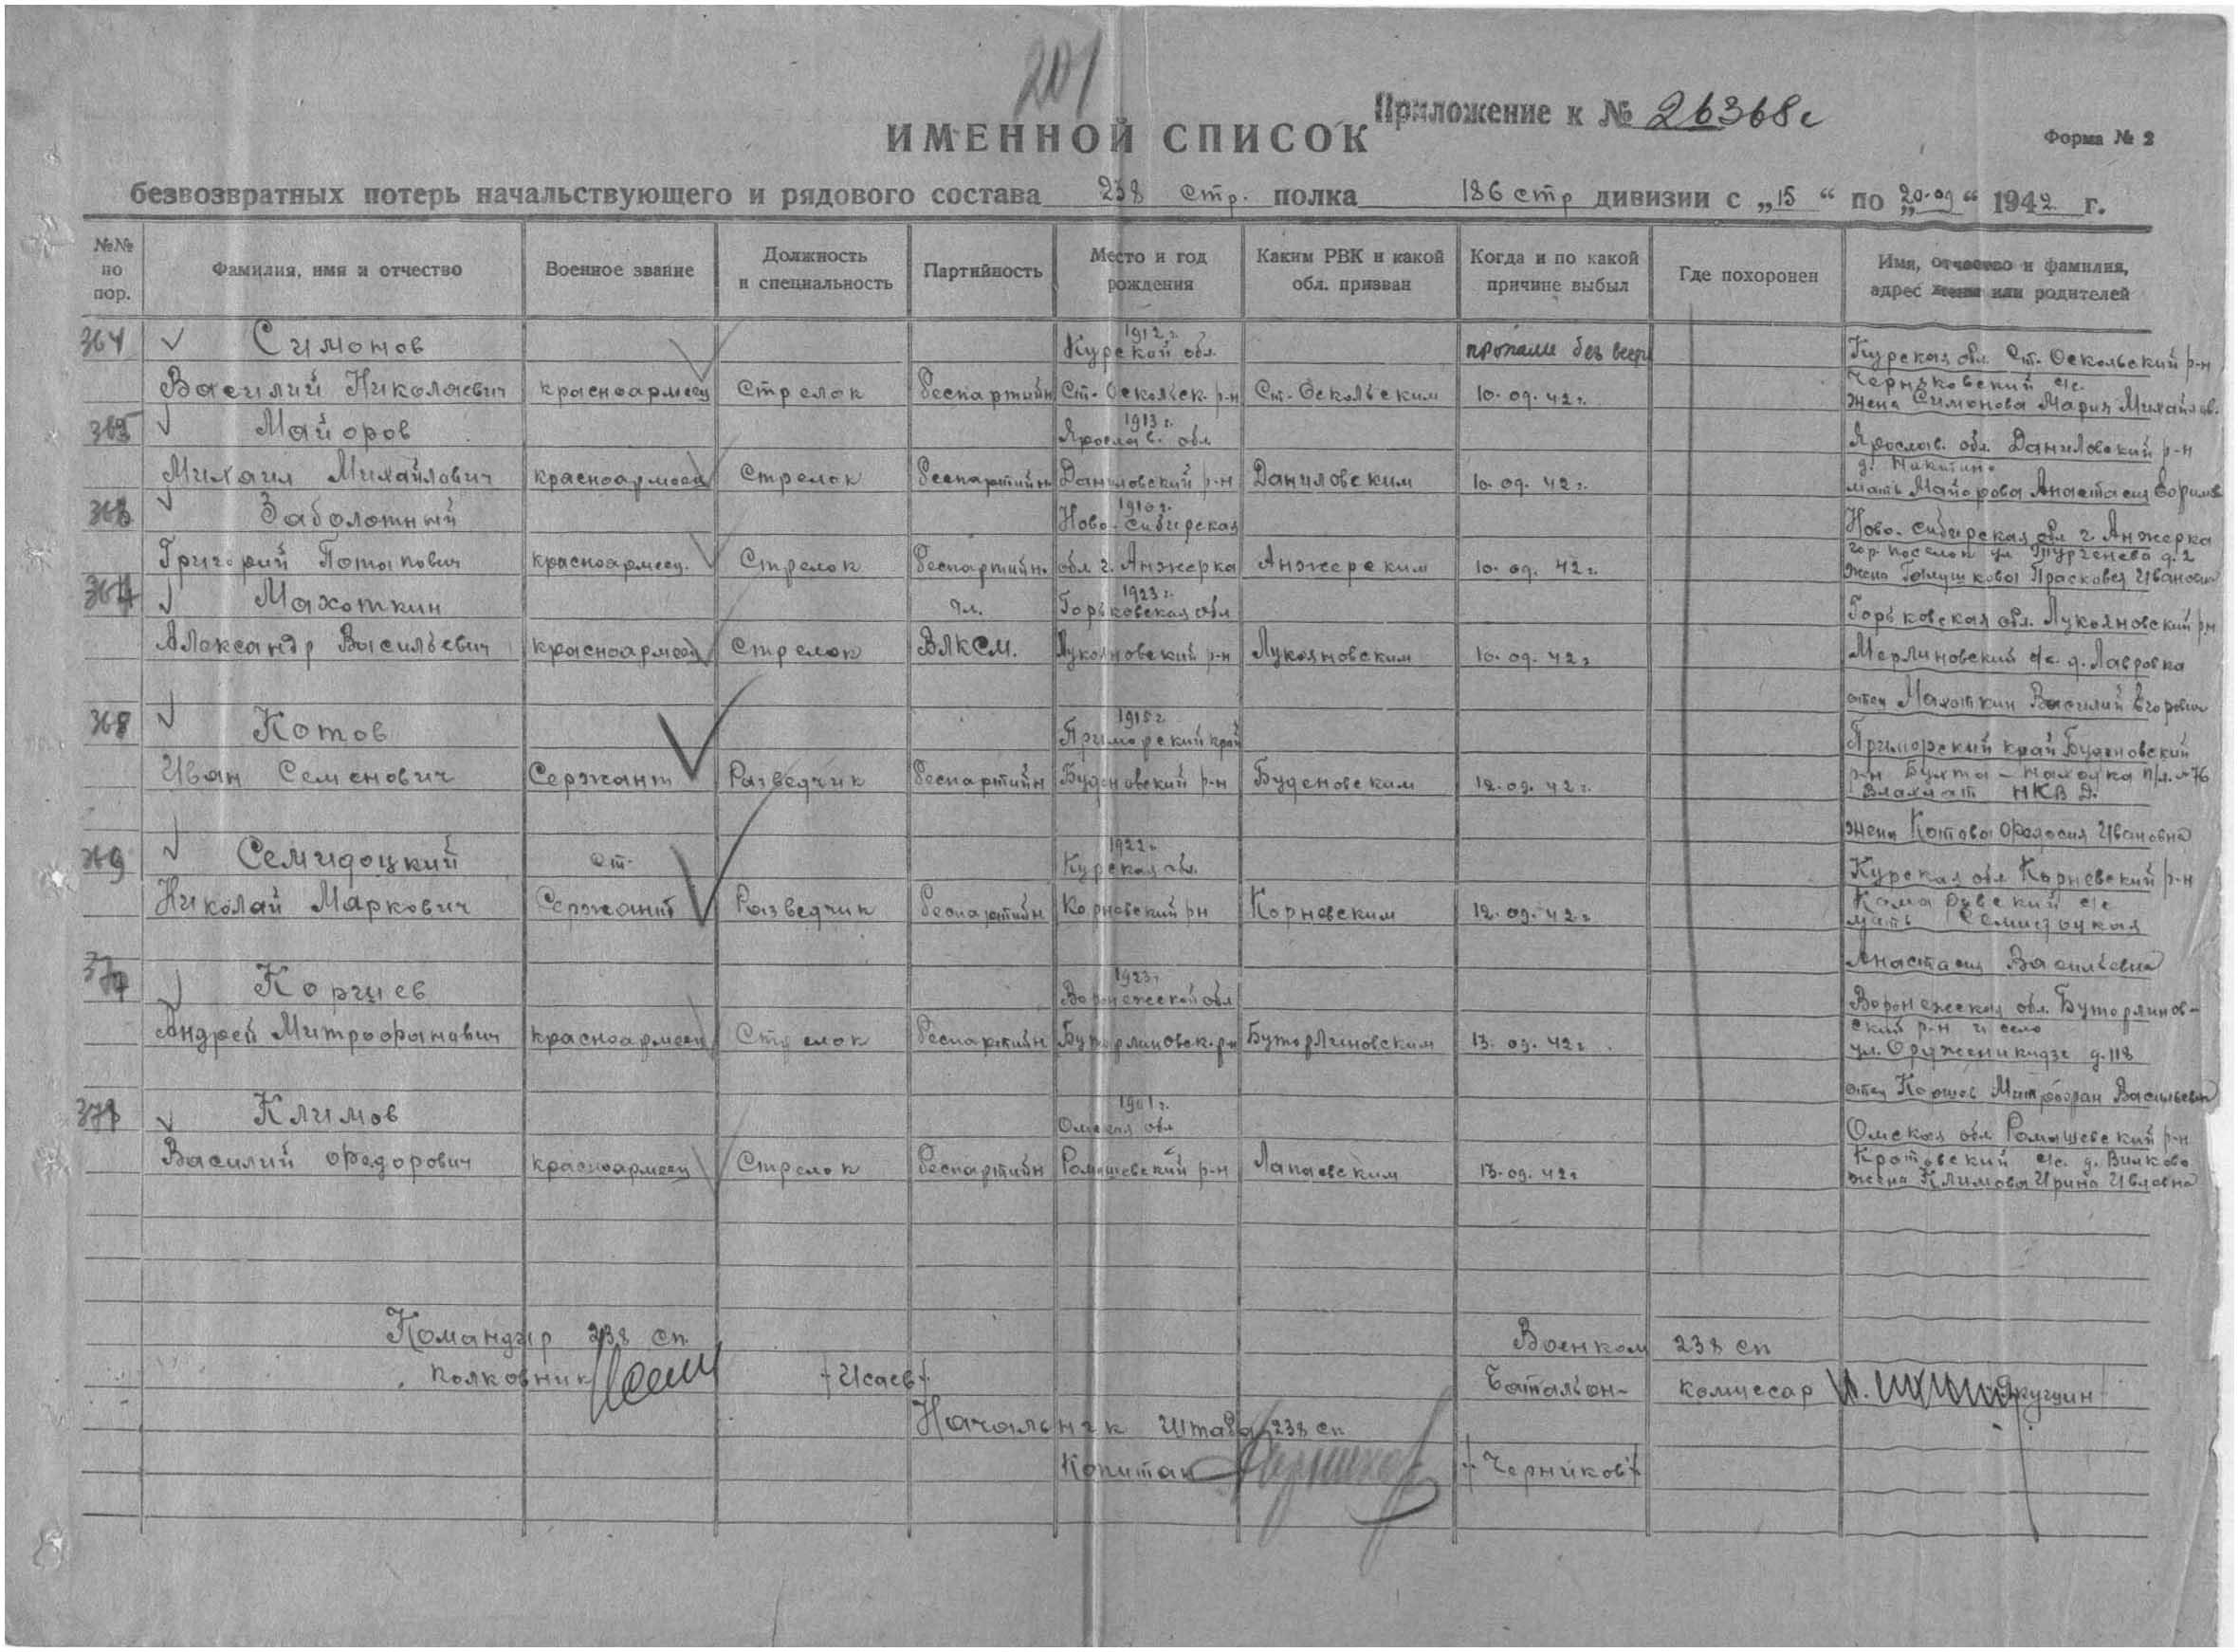 201
Приложение к № 26368с
ИМЕННОЙ СПИСОК
Форма № 2
безвозвратных потерь начальствующего и рядового состава 238 стр. полка 186 стр дивизии с „15“ по „20.09“ 1942 г.
№№ по пор.
Фамилия, имя и отчество
Военное звание
Должность и специальность
Партийность
Место и год рождения
Каким РВК и какой обл. призван
Когда и по какой причине выбыл
Где похоронен
Имя, отчество и фамилия, адрес жены или родителей
364 Симонов 1912 г. Курской обл. пропали без вест Курская обл. Ст. Оскольский р-н
Василий Николаевич красноармеец Стрелок беспартийн Ст. Оскольск. р-н Ст. Оскольским 10.09.42 г. Черниковский с/с.
жена Симонова Мария Михайлов.
365 Майоров 1913 г. Ярослав. обл. Ярослав. обл. Даниловский р-н
Михаил Михайлович красноармеец Стрелок беспартийн Даниловский р-н Даниловским 10.09.42 г. д. Никитино
мать Майорова Анастасия
Заболотный 1910 г. Ново-Сибирская Ново-Сибирская обл г. Анжерка
Григорий Потапович красноармеец. Стрелок беспартийн. обл г. Анжерка Анжерским 10.09.42 г. гор. поселок ул Тургенева д. 2
жена Галушкова Прасковея Ивановн
Махоткин чл. 1923 г. Горьковская обл Горьковская обл. Лукояновский р-н
Александр Васильевич красноармеец Стрелок ВЛКСМ. Лукояновский р-н Лукояновским 10.09.42 г Мерлиновский с/с. д. Лавровка
отец Махоткин Василий Егорович
368 Котов 1915 г Приморский край Приморский край Буденовский
Иван Семенович Сержант Разведчик беспартийн Буденовский р-н Буденовским 12.09.42 г. р-н Бухта-Находка п/я. 76
НКВД.
жена Котова Федосия Ивановна
369 Семидоцкий ст. 1922 г. Курская обл. Курская обл Корневский р-н
Николай Маркович Сержант Разведчик беспартийн Корневский рн Корневским 12.09.42 г с/с
мать Семидоцкая
Анастасия Васильевна
Коршев 1923 г. Воронежской обл Воронежская обл. Бутурлинов-
Андрей Митрофанович красноармеец Стрелок беспартийн Бутурлиновск. р-н Бутурлиновским 13.09.42 г. ский р-н и село
ул. Орджоникидзе д. 118
отец Коршев Митрофан Васильевич
Климов 1901 г. Омская обл Омская обл Ромашевский р-н
Василий Федорович красноармеец Стрелок беспартийн Ромашевский р-н Лапаевским 13.09.42 г Кротовский с/с. д. Вилково
жена Климова Ирина
Командир 238 сп Военком 238 сп
полковник /Исаев/ Батальон- комиссар
Начальник штаба 238 сп
Капитан /Черников/